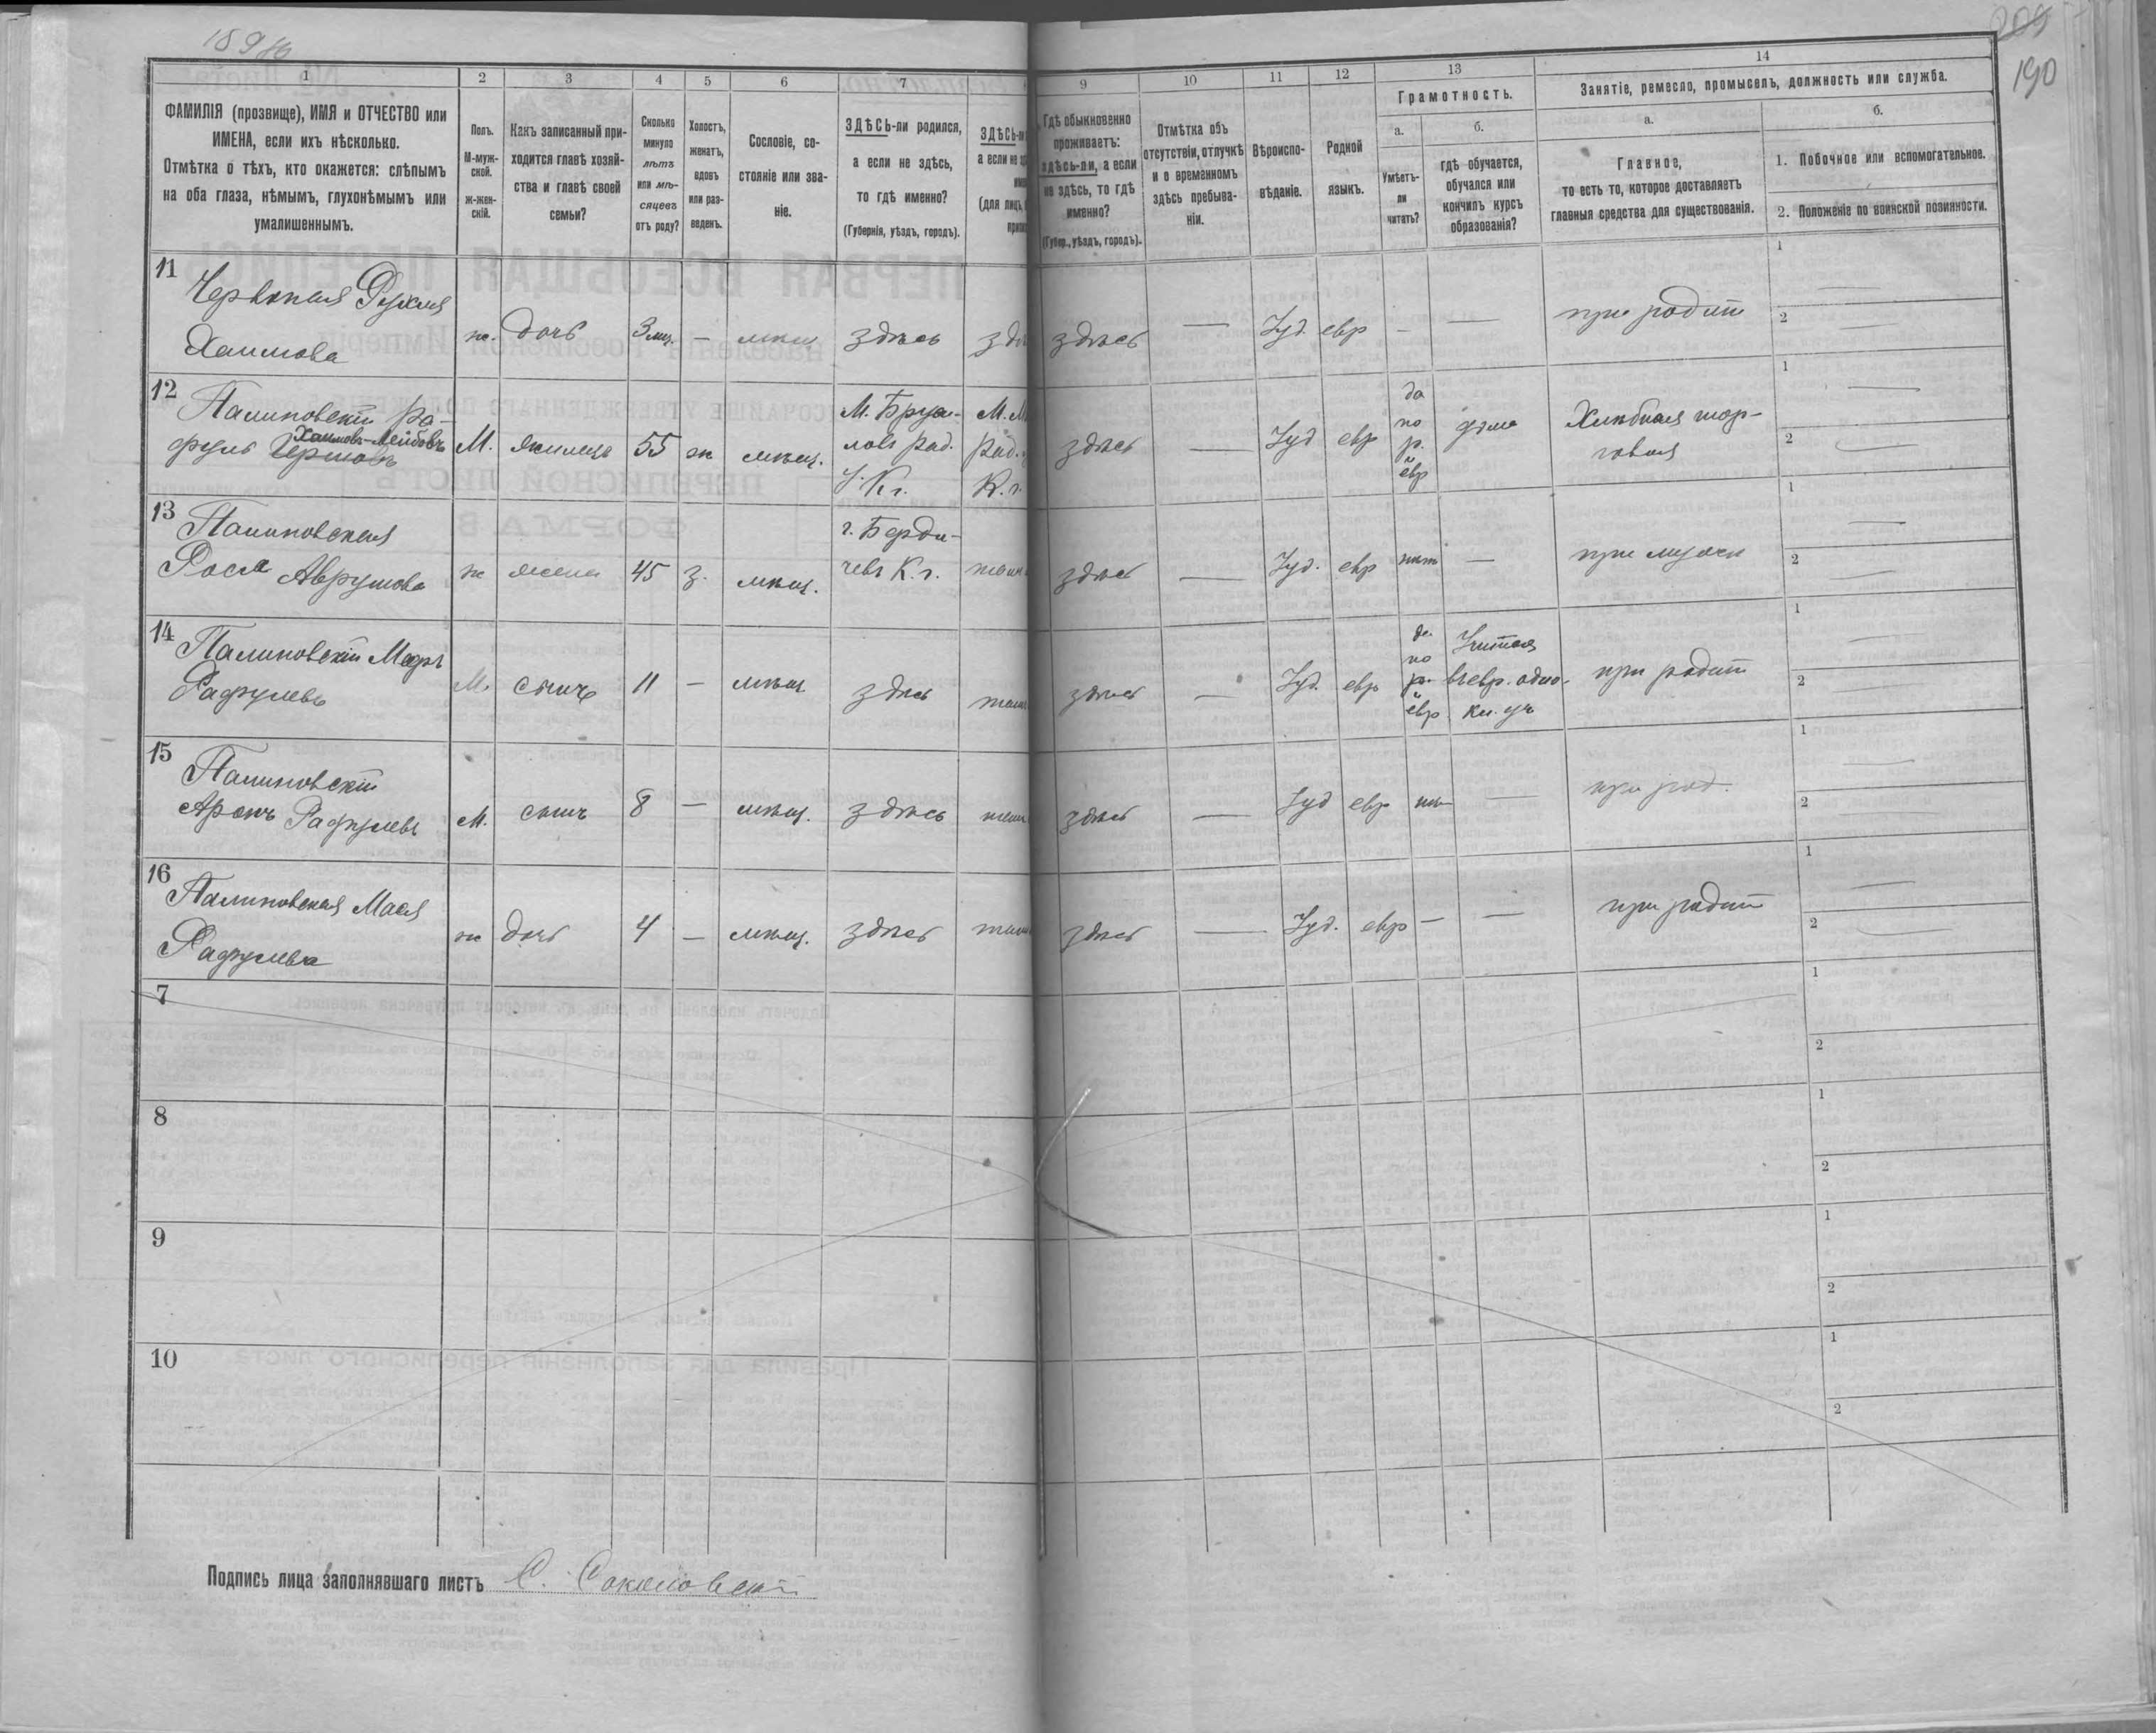 189
209
190
1
2
3
4
5
6
7
9
10
11
12
13
14
ФАМИЛІЯ (прозвище), ИМЯ и ОТЧЕСТВО или
ИМЕНА, если ихъ нѣсколько.
Отмѣтка о тѣхъ, кто окажется: слѣпымъ
на оба глаза, нѣмымъ, глухонѣмымъ или
умалишеннымъ.
Полъ.
М-муж-
ской.
ж-жен-
скій.
Какъ записанный при-
ходится главѣ хозяй-
ства и главѣ своей
семьи?
Сколько
минуло
лѣтъ
или мѣ-
сяцевъ
отъ роду?
Холостъ,
женатъ,
вдовъ
или раз-
веденъ.
Сословіе, со-
стояніе или зва-
ніе.
ЗДѢСЬ-ли родился,
а если не здѣсь,
то гдѣ именно?
(Губернія, уѣздъ, городъ).
ЗДѢСЬ-
а если не
(для лицъ,
Гдѣ обыкновенно
проживаетъ:
здѣсь-ли, а если
не здѣсь, то гдѣ
именно?
(Губер., уѣздъ, городъ).
Отмѣтка объ
отсутствіи, отлучкѣ
и о временномъ
здѣсь пребыва-
ніи.
Вѣроиспо-
вѣданіе.
Родной
языкъ.
Грамотность.
а.
Умѣетъ-
ли
читать?
б.
гдѣ обучается,
обучался или
кончилъ курсъ
образованія?
Занятіе, ремесло, промыселъ, должность или служба.
а.
Главное,
то есть то, которое доставляетъ
главныя средства для существованія.
б.
1. Побочное или вспомогательное.
2. Положеніе по воинской повинности.
11
Хаимова
ж. дочь 3 мц. — мѣщ. здѣсь
здѣсь — Іуд. евр — — при родит
1
2
12
Палиповскій Ра-
фуль Хаимовъ-Лейбовъ
М. жилецъ 55 ж мѣщ.
К г.
здѣсь — Іуд евр
да
по
р.
и
евр
дома
Хлѣбная тор-
говая
1
2
13
Палиповская
Рося Аврумова
ж жена 45 з. мѣщ.
г. Берди-
чевъ К. г.
здѣсь — Іуд. евр нѣт — при мужѣ
1
2
14
Палиповскій Мееръ
Рафулевъ
М. сынъ 11 — мѣщ здѣсь
здѣсь — Іуд. евр
да
по
р.
и
евр
въ евр. одно-
кл. уч
при родит
1
2
15
Палиповскій
Аронъ Рафулевъ
М. сынъ 8 — мѣщ. здѣсь
здѣсь — Іуд евр нѣт — при род.
1
2
16
Палиповская Мася
Рафулева
ж дочь 4 — мѣщ. здѣсь
здѣсь — Іуд. евр — — при родит
1
2
7
1
2
8
1
2
9
1
2
10
1
2
Подпись лица заполнявшаго листъ С. Соколовскій